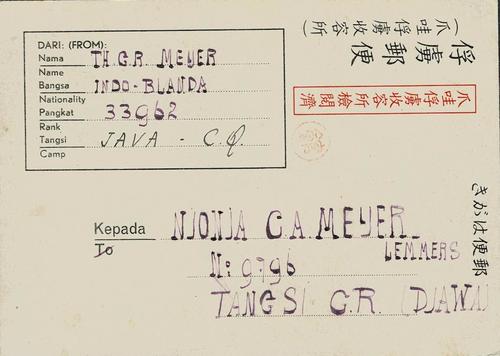 DARI: (FROM):
Nama TH.G.R. MEYER
Name
Bangsa INDO-BLANDA
Nationality
Pangkat 33962
Rank
Tangsi JAVA - C.Q.
Camp
(爪哇俘虜収容所)
俘虜郵便
爪哇俘虜收容所檢閱濟
きがは便郵
Kepada NJONJA C.A. MEYER
To
LEMMERS
N: 9796
TANGSI G.R. (DJAWA)